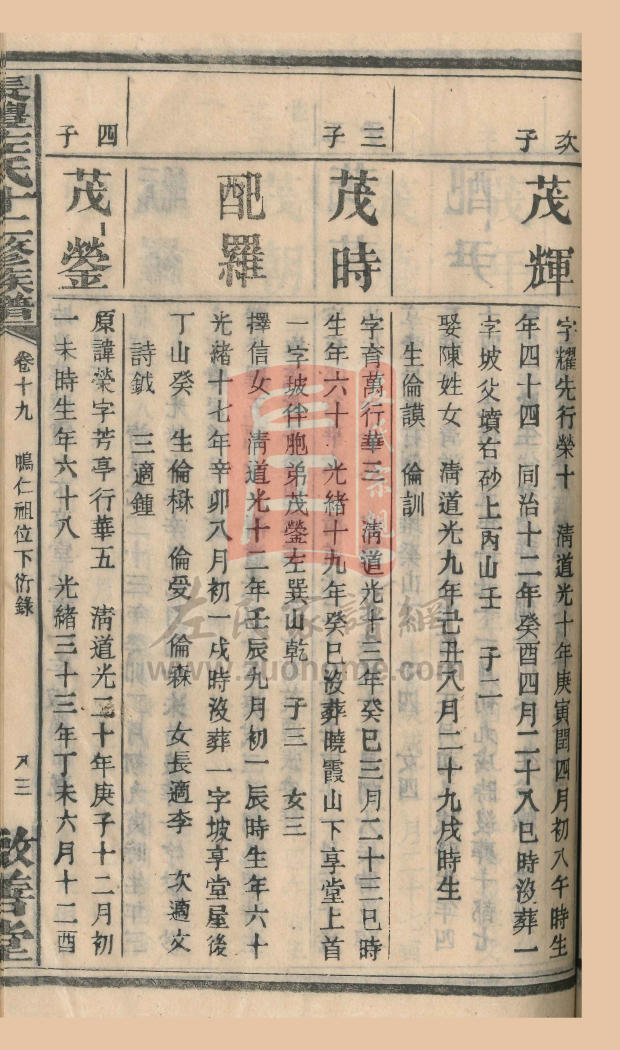 次子
茂輝
字耀先行榮十　清道光十年庚寅閏四月初八午時生
年四十四　同治十二年癸酉四月二十八巳時沒葬一
字坡父墳右砂上丙山壬　子二
娶陳姓女　清道光九年己丑八月二十九戌時生
生倫謨　倫訓
三子
茂時
字育萬行華三　清道光十三年癸巳三月二十三巳時
生年六十一　光緒十九年癸巳沒葬曉霞山下享堂上首
一字坡伴胞弟茂鎣左巽山乾　子三　女三
配羅
擇信女　清道光十二年壬辰九月初一辰時生年六十
光緒十七年辛卯八月初一戌時沒葬一字坡享堂屋後
丁山癸　生倫棶　倫受　倫森　女長適李　次適文
詩鉞　三適鍾
四子
茂鎣
原諱榮字芳亭行華五　清道光二十年庚子十二月初
一未時生年六十八　光緒三十三年丁未六月十二酉
長澧左氏十二修族譜
卷十九　鳴仁祖位下衍錄
三
敬善堂
左氏家譜網
www.zuohome.com